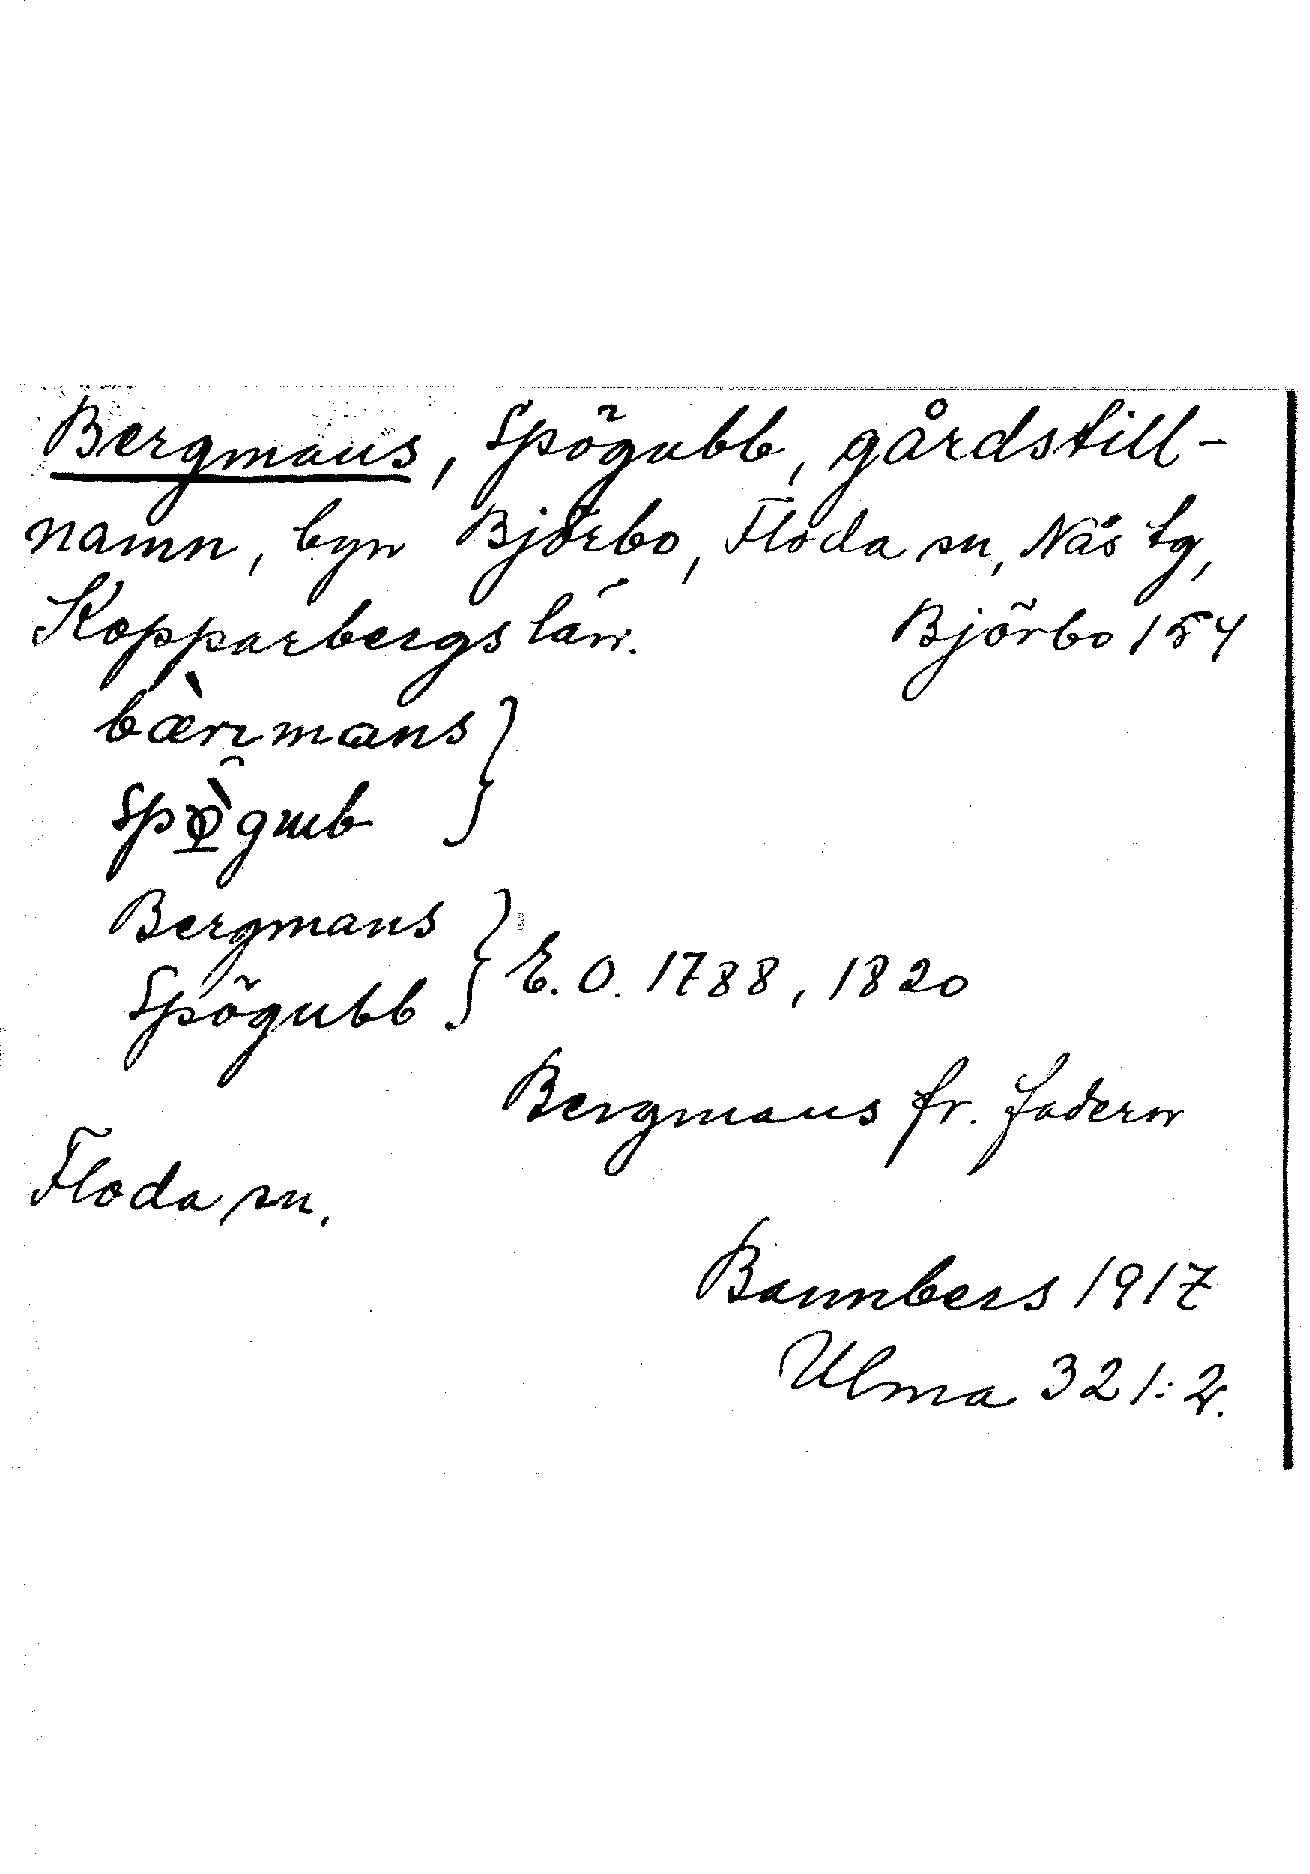 Bergmans, Spögubb, gårdstill-
namn, byn Björbo, Floda sn, Nås tg,
Kopparbergs län. Björbo 154
bæ̀rmans
Spö̀gub
Bergmans
Spögubb } E. O. 1788, 1820
Bergmans fr. fadern
Floda sn.
Bannbers 1917
Ulma 321:2.